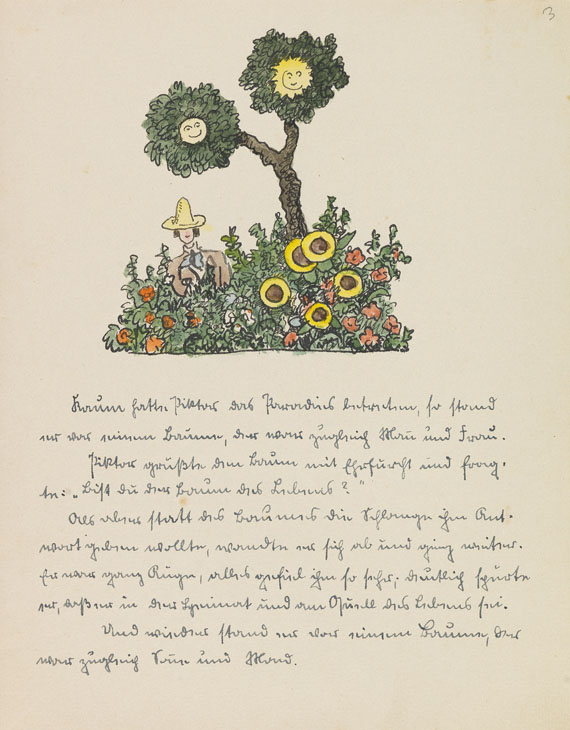 3
Kaum hatte Piktor das Paradies betreten, so stand
er vor einem Baume, der war zugleich Mañ und Frau.
Piktor grüßte den Baum mit Ehrfurcht und frag-
te: „Bist du der Baum des Lebens?"
Als aber statt des Baumes die Schlange ihm Ant-
wort geben wollte, wandte er sich ab und ging weiter.
Er war ganz Auge, alles gefiel ihm so sehr; deutlich spürte
er, daß er in der Heimat und am Quell des Lebens sei.
Und wieder stand er vor einem Baume, der
war zugleich Soñe und Mond.